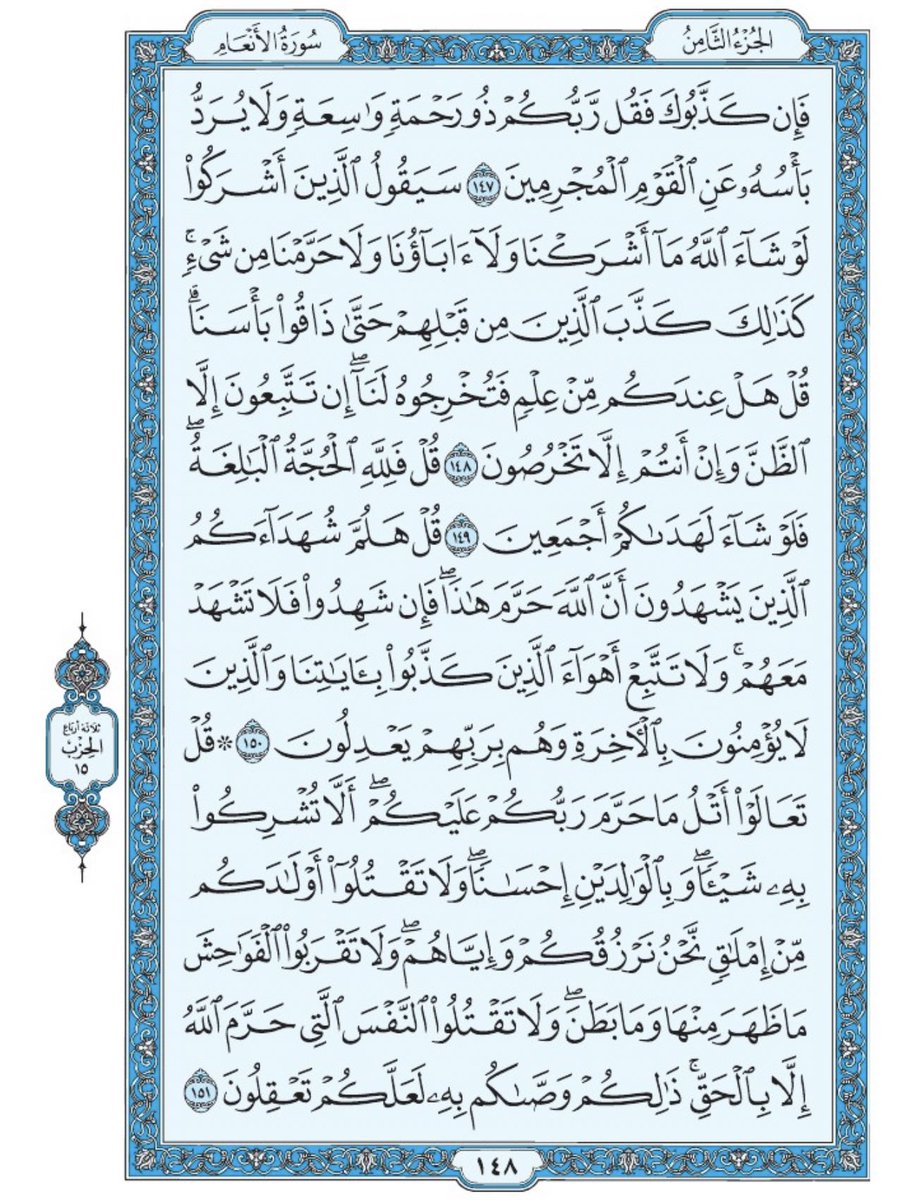 الجُزْءُ الثَّامِنُ
سُورَةُ الأَنْعَامِ
فَإِن كَذَّبُوكَ فَقُل رَّبُّكُمْ ذُو رَحْمَةٍ وَٰسِعَةٍ وَلَا يُرَدُّ
بَأْسُهُۥ عَنِ ٱلْقَوْمِ ٱلْمُجْرِمِينَ ١٤٧ سَيَقُولُ ٱلَّذِينَ أَشْرَكُوا۟
لَوْ شَآءَ ٱللَّهُ مَآ أَشْرَكْنَا وَلَآ ءَابَآؤُنَا وَلَا حَرَّمْنَا مِن شَىْءٍ ۚ
كَذَٰلِكَ كَذَّبَ ٱلَّذِينَ مِن قَبْلِهِمْ حَتَّىٰ ذَاقُوا۟ بَأْسَنَا ۗ
قُلْ هَلْ عِندَكُم مِّنْ عِلْمٍ فَتُخْرِجُوهُ لَنَآ ۖ إِن تَتَّبِعُونَ إِلَّا
ٱلظَّنَّ وَإِنْ أَنتُمْ إِلَّا تَخْرُصُونَ ١٤٨ قُلْ فَلِلَّهِ ٱلْحُجَّةُ ٱلْبَٰلِغَةُ ۖ
فَلَوْ شَآءَ لَهَدَىٰكُمْ أَجْمَعِينَ ١٤٩ قُلْ هَلُمَّ شُهَدَآءَكُمُ
ٱلَّذِينَ يَشْهَدُونَ أَنَّ ٱللَّهَ حَرَّمَ هَٰذَا ۖ فَإِن شَهِدُوا۟ فَلَا تَشْهَدْ
مَعَهُمْ ۚ وَلَا تَتَّبِعْ أَهْوَآءَ ٱلَّذِينَ كَذَّبُوا۟ بِـَٔايَٰتِنَا وَٱلَّذِينَ
لَا يُؤْمِنُونَ بِٱلْـَٔاخِرَةِ وَهُم بِرَبِّهِمْ يَعْدِلُونَ ١٥٠ * قُلْ
تَعَالَوْا۟ أَتْلُ مَا حَرَّمَ رَبُّكُمْ عَلَيْكُمْ ۖ أَلَّا تُشْرِكُوا۟
بِهِۦ شَيْـًٔا ۖ وَبِٱلْوَٰلِدَيْنِ إِحْسَٰنًا ۖ وَلَا تَقْتُلُوٓا۟ أَوْلَٰدَكُم
مِّنْ إِمْلَٰقٍ ۖ نَّحْنُ نَرْزُقُكُمْ وَإِيَّاهُمْ ۖ وَلَا تَقْرَبُوا۟ ٱلْفَوَٰحِشَ
مَا ظَهَرَ مِنْهَا وَمَا بَطَنَ ۖ وَلَا تَقْتُلُوا۟ ٱلنَّفْسَ ٱلَّتِى حَرَّمَ ٱللَّهُ
إِلَّا بِٱلْحَقِّ ۚ ذَٰلِكُمْ وَصَّىٰكُم بِهِۦ لَعَلَّكُمْ تَعْقِلُونَ ١٥١
ثلاثة أرباع
الحِزْب
١٥
١٤٨